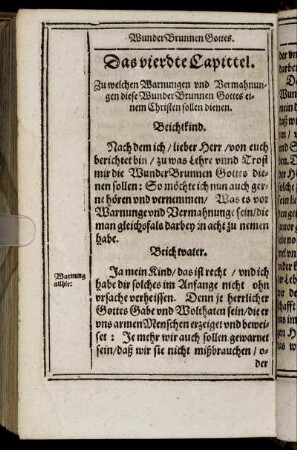 WunderBrunnen Gottes.
Das vierdte Capittel.
Zu welchen Warnungen vnd Vermahnun-
gen diese WunderBrunnen Gottes ei-
nem Christen sollen dienen.
Beichtkind.
Nach dem ich / lieber Herr / von euch
berichtet bin / zu was Lehre vnnd Trost
mir die WunderBrunnen Gottes die-
nen sollen: So möchte ich nun auch ger-
ne hören vnd vernemmen / Was es vor
Warnunge vnd Vermahnunge sein / die
man gleichsfals darbey in acht zu nemen
habe.
Beichtvater.
Warnung
allhie:
Ja mein Kind / das ist recht / vnd ich
habe dir solches im Anfange nicht ohn
vrsache verheissen. Denn je herrlicher
Gottes Gabe vnd Wolthaten sein / die er
vns armen Menschen erzeiget vnd bewei-
set: Je mehr wir auch sollen gewarnet
sein / daß wir sie nicht mißbrauchen / o-
der